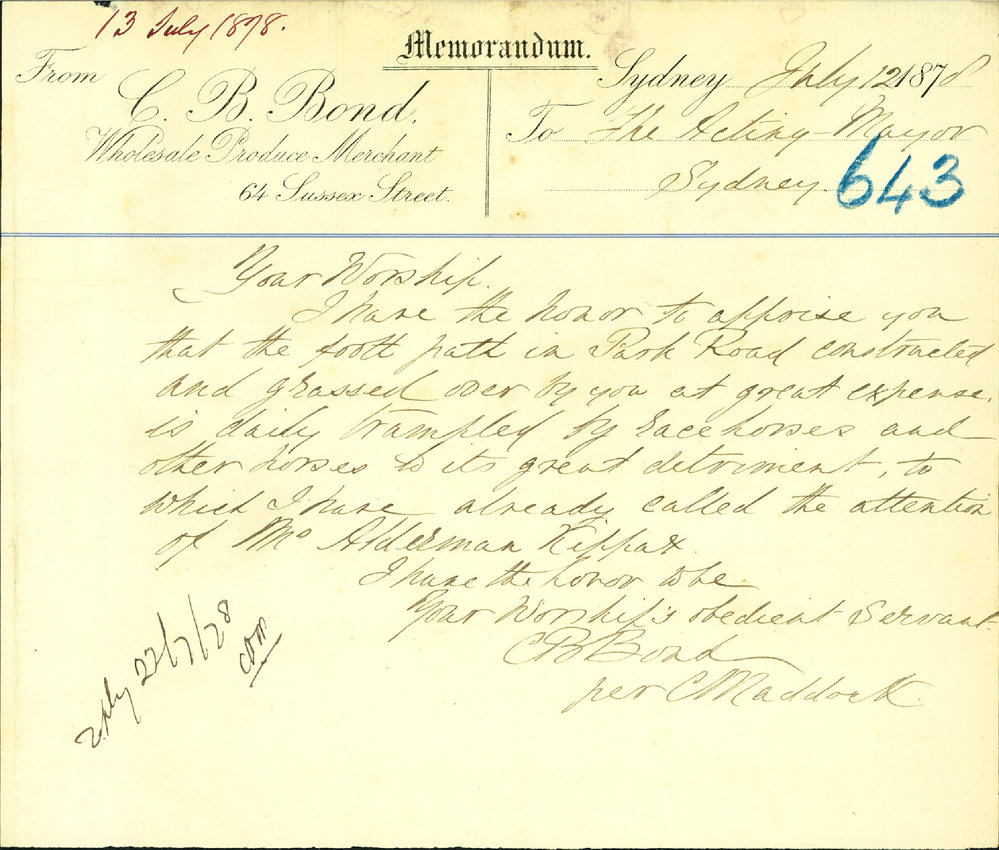 13 July 1878.
Memorandum.
From
C. B. Bond.
Wholesale Produce Merchant
64 Sussex Street.
Sydney July 12 1878
To The Acting-Mayor
Sydney.
643
Your Worship.
I have the honor to apprise you
that the foott path in Park Road constructed
and grassed over by you at great expense.
is daily trampled by racehorses and
other horses to its great detriment, to
which I have already called the attention
of Mr Alderman Kippax.
I have the honor to be
Your Worship's obedient Servant
C B Bond
per C Maddock
reply 22/7/78